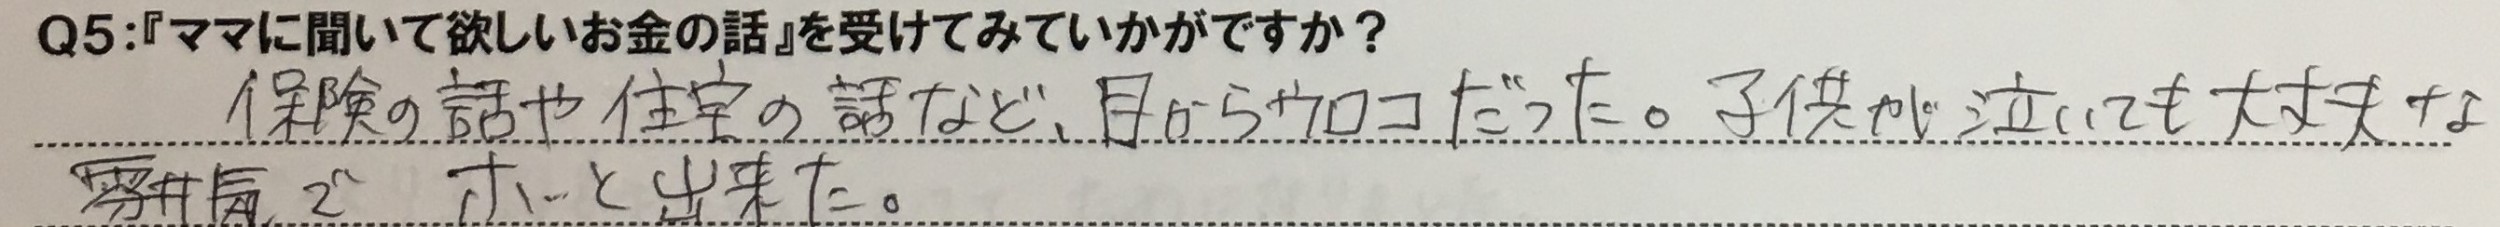 Q5:『ママに聞いて欲しいお金の話』を受けてみていかがですか？
保険の話や住宅の話など、目からウロコだった。子供が泣いても大丈夫な
雰囲気で ホッと出来た。